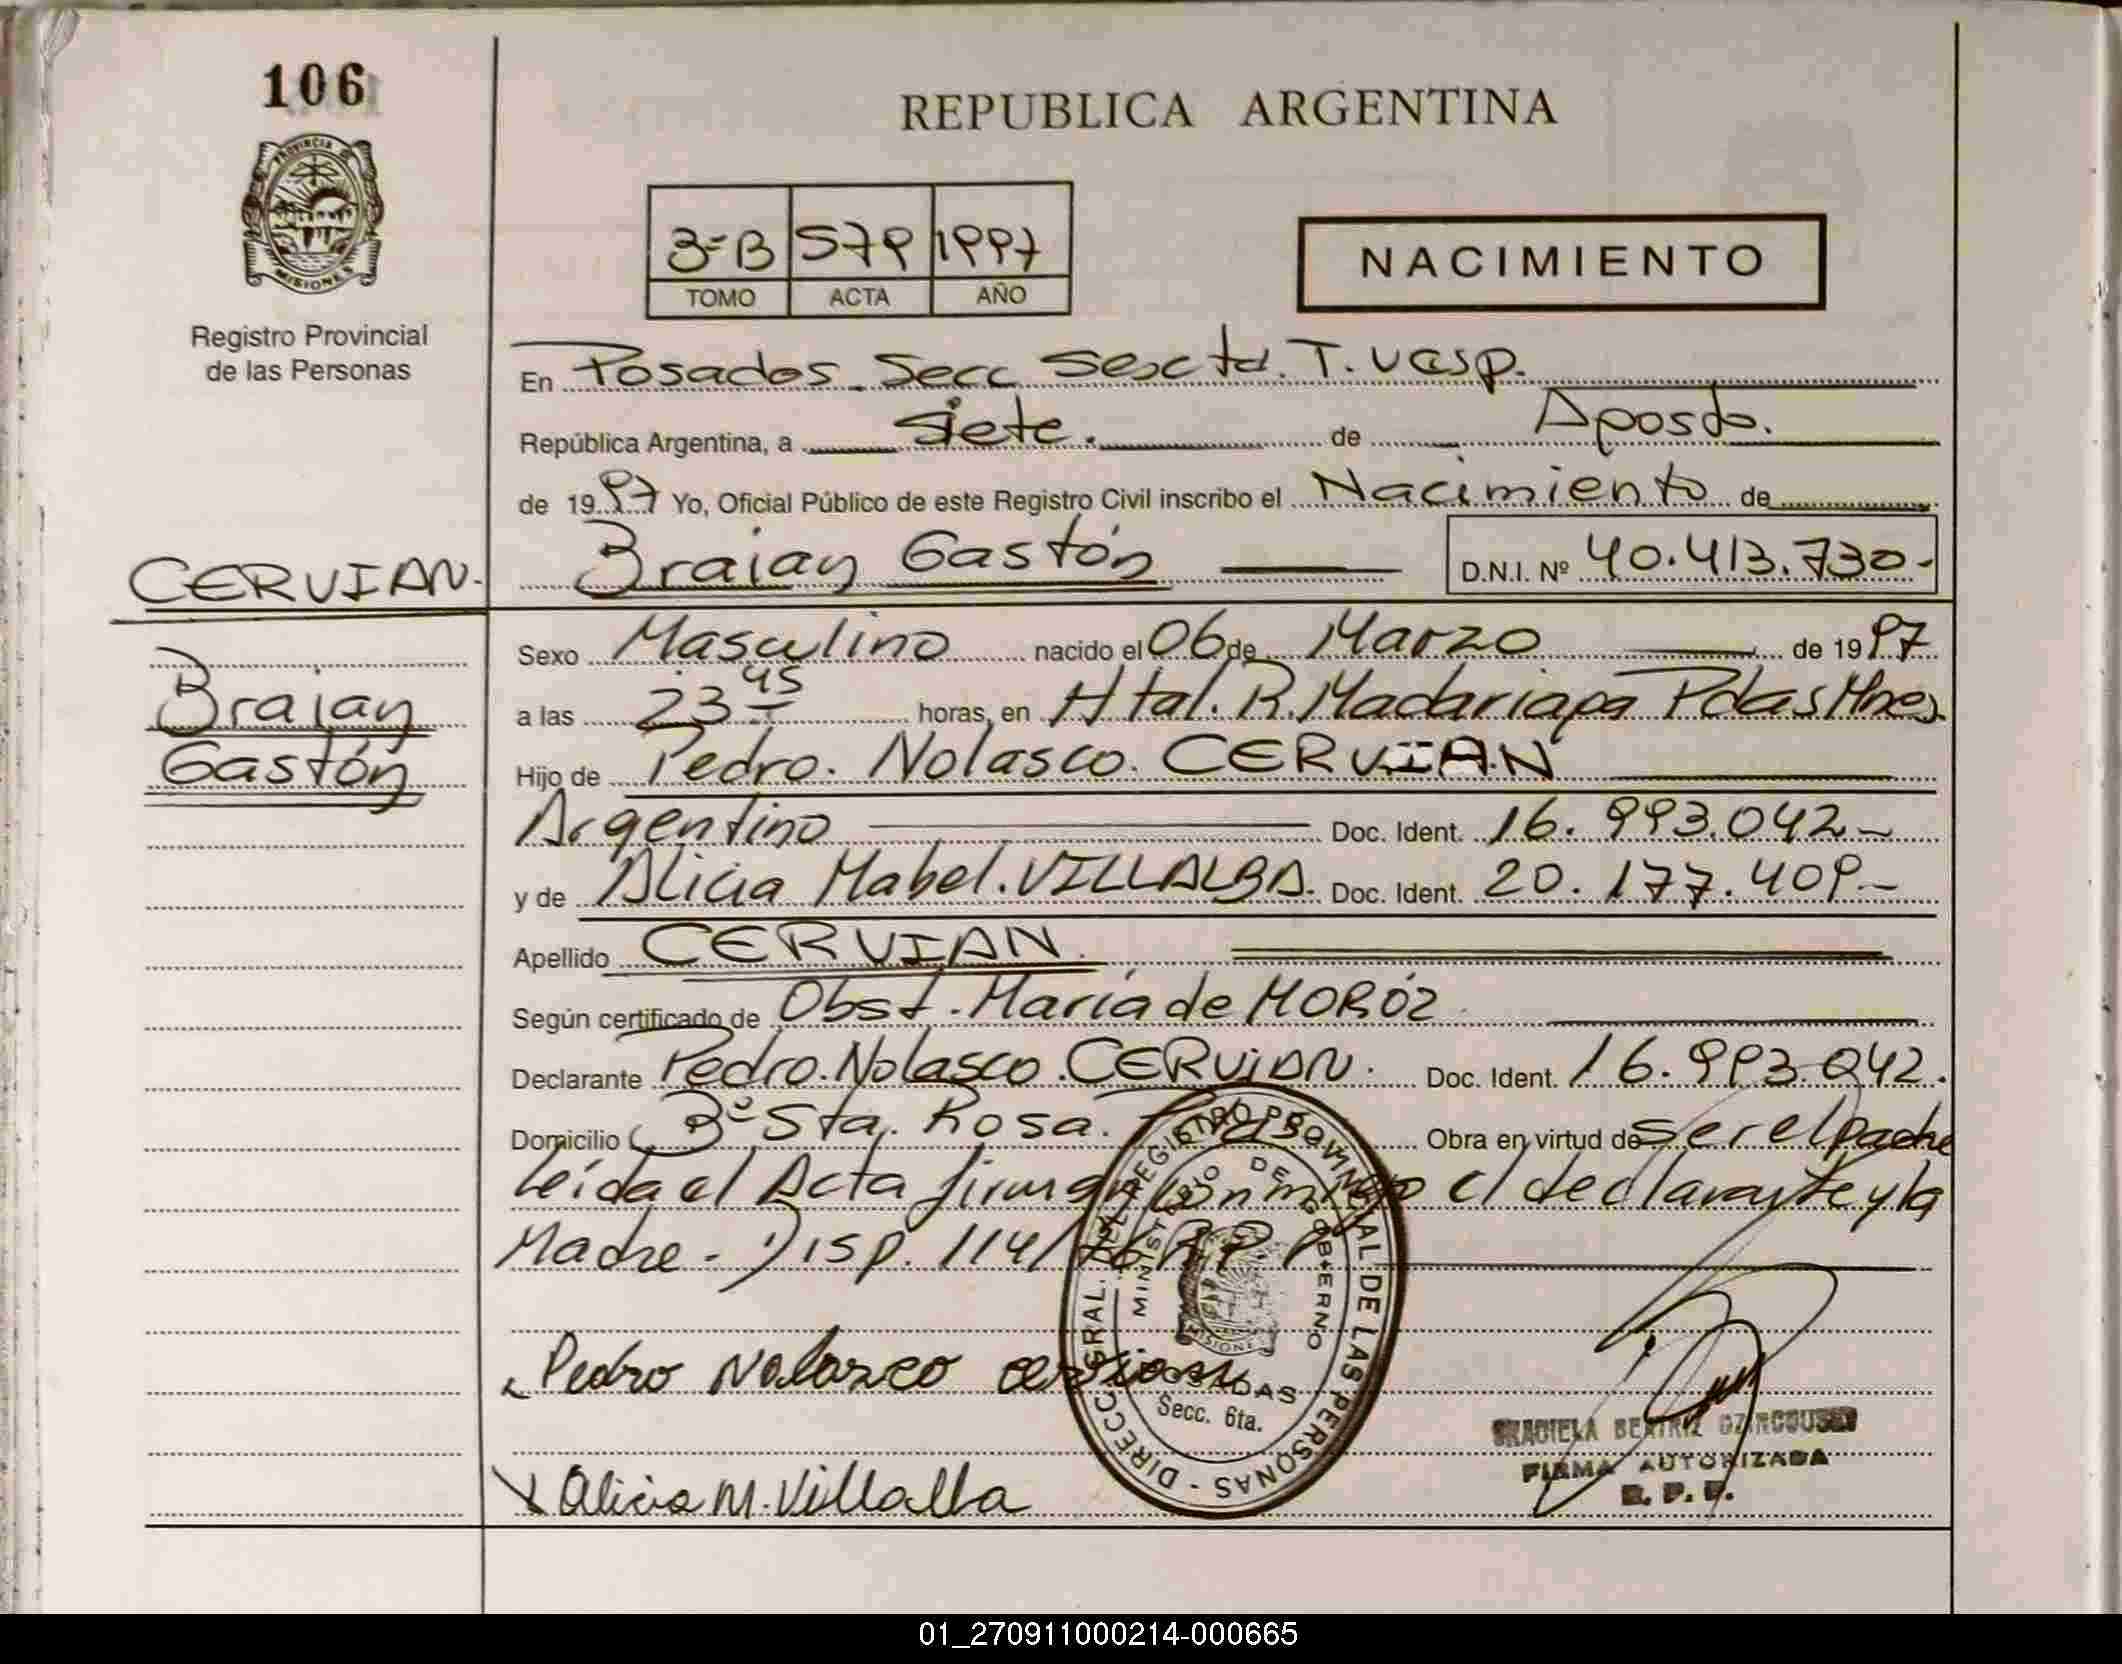 106
REPUBLICA ARGENTINA
PROVINCIA DE
MISIONES
Registro Provincial
de las Personas
3=B 579 1997
TOMO ACTA AÑO
NACIMIENTO
En Posadas. Secc Sexta. T. Vesp.
República Argentina, a siete. de Agosto.
de 1997 Yo, Oficial Público de este Registro Civil inscribo el Nacimiento de
Braian Gastón D.N.I. Nº 40.413.730-
CERVIAN.
Braian
Gastón
Sexo Masculino nacido el 06 de Marzo de 1997
a las 23 45 horas, en Htal. R. Madariaga Pdas Mnes.
Hijo de Pedro. Nolasco. CERVIAN
Argentino Doc. Ident. 16.993.042-
y de Alicia Mabel. VILLALBA. Doc. Ident. 20.177.409-
Apellido CERVIAN.
Según certificado de Obst. María de MORÓZ
Declarante Pedro. Nolasco. CERVIAN. Doc. Ident. 16.993.042.
Domicilio Bº Sta. Rosa. Obra en virtud de ser el padre
Leída el Acta firman conmigo el declarante y la
Madre. Disp. 114/76
Pedro Nolazco cervian
Alicia M. Villalba
DIRECC. GRAL. DEL REGISTRO PROVINCIAL DE LAS PERSONAS
MINISTERIO DE GOBIERNO
MISIONES
POSADAS
Secc. 6ta.
GRACIELA BEATRIZ
FIRMA AUTORIZADA
R. P. P.
01_270911000214-000665